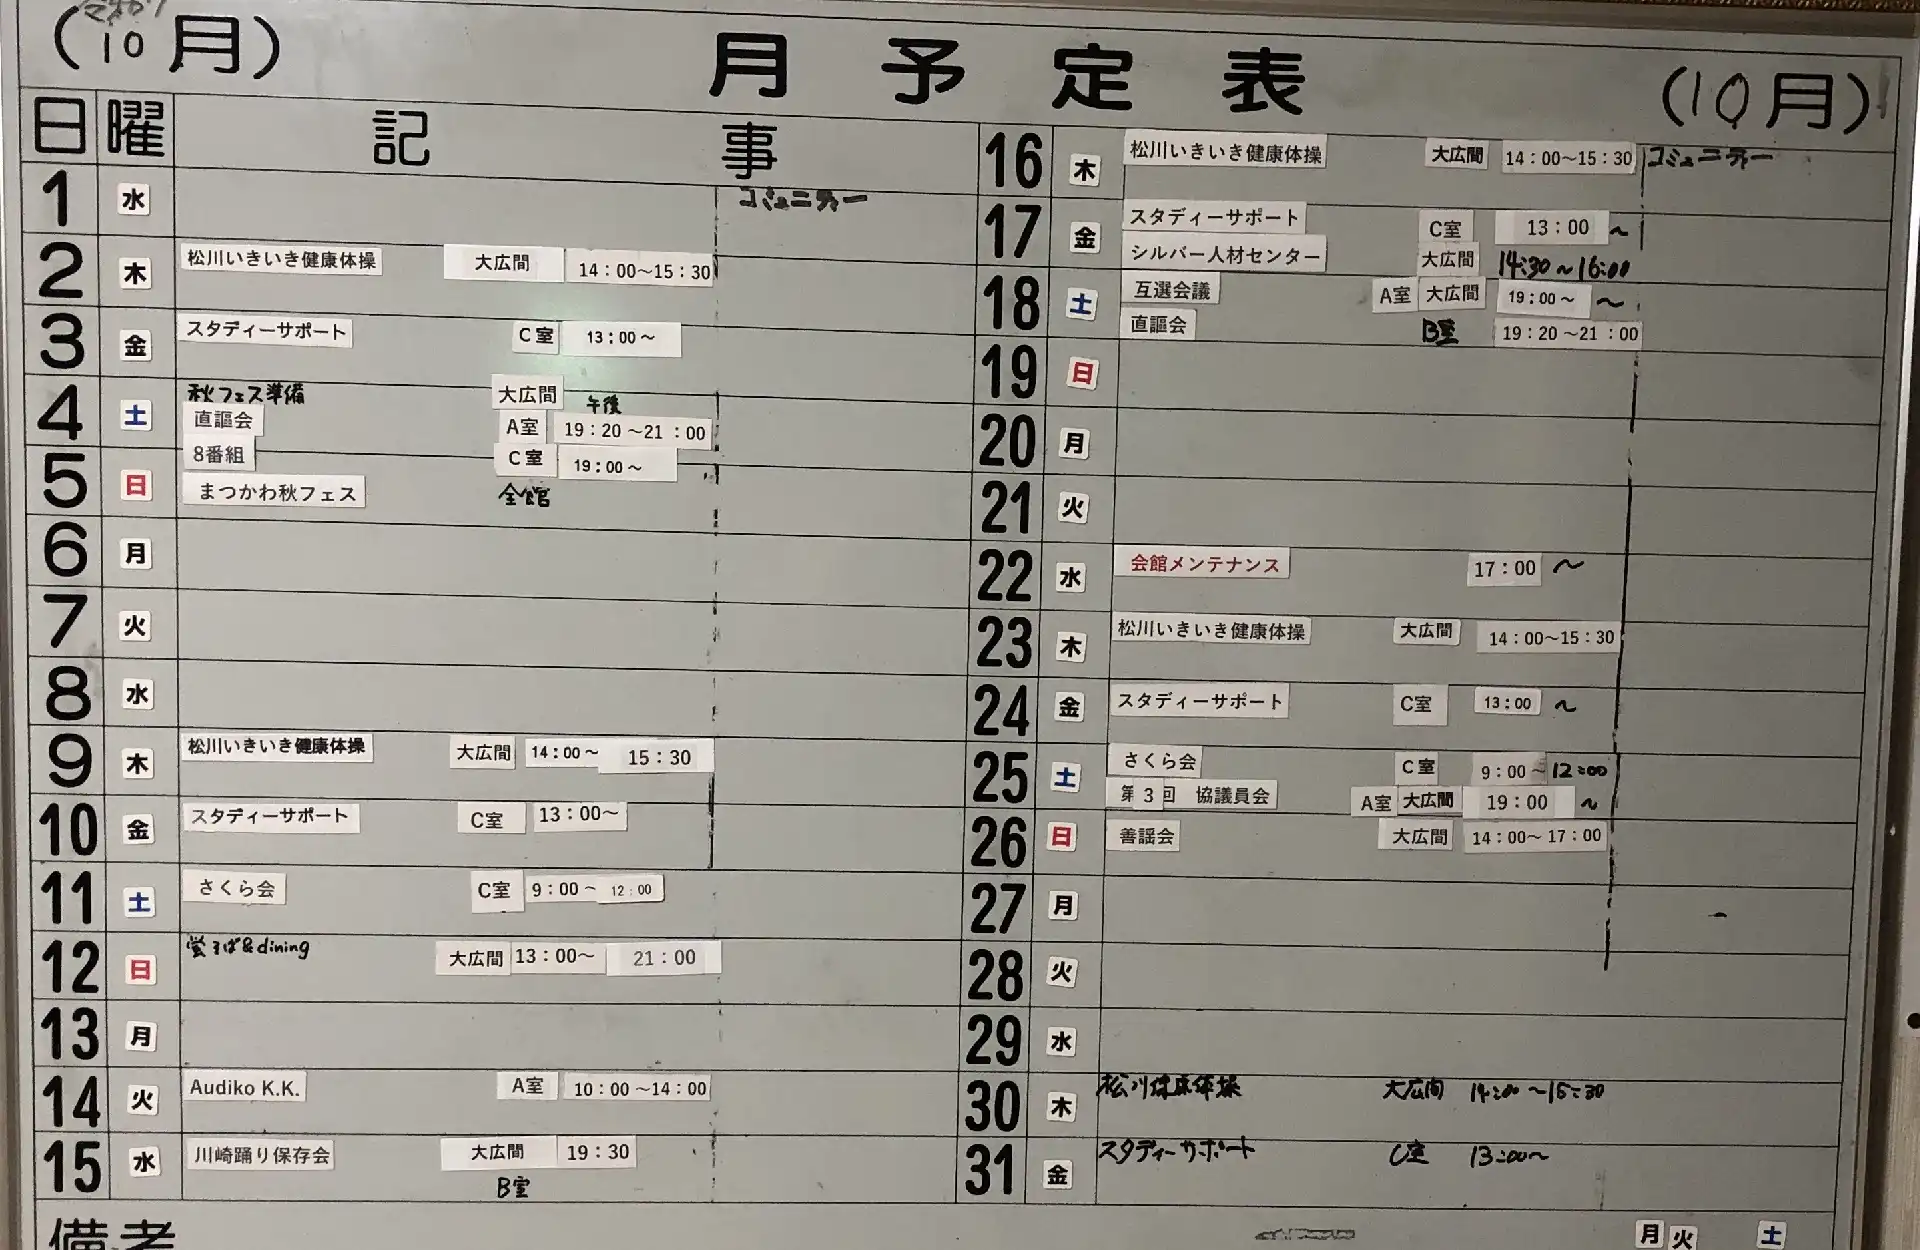 (10月)
月予定表
(10月)
日 曜 記事
1 水 コミュニティー
2 木 松川いきいき健康体操 大広間 14:00～15:30
3 金 スタディーサポート C室 13:00～
4 土 秋フェス準備 大広間 午後
直謳会 A室 19:20～21:00
8番組 C室 19:00～
5 日 まつかわ秋フェス 全館
6 月
7 火
8 水
9 木 松川いきいき健康体操 大広間 14:00～ 15:30
10 金 スタディーサポート C室 13:00～
11 土 さくら会 C室 9:00～ 12:00
12 日 蛍そば&dining 大広間 13:00～ 21:00
13 月
14 火 Audiko K.K. A室 10:00～14:00
15 水 川崎踊り保存会 大広間 19:30
B室
16 木 松川いきいき健康体操 大広間 14:00～15:30 コミュニティー
17 金 スタディーサポート C室 13:00 ～
シルバー人材センター 大広間 14:30～16:00
18 土 互選会議 A室 大広間 19:00～ ～
直謳会 B室 19:20～21:00
19 日
20 月
21 火
22 水 会館メンテナンス 17:00 ～
23 木 松川いきいき健康体操 大広間 14:00～15:30
24 金 スタディーサポート C室 13:00 ～
25 土 さくら会 C室 9:00～12:00
第3回 協議員会 A室 大広間 19:00 ～
26 日 善謡会 大広間 14:00～17:00
27 月
28 火
29 水
30 木 松川健康体操 大広間 14:00～15:30
31 金 スタディーサポート C室 13:00～
備考
月 火 土